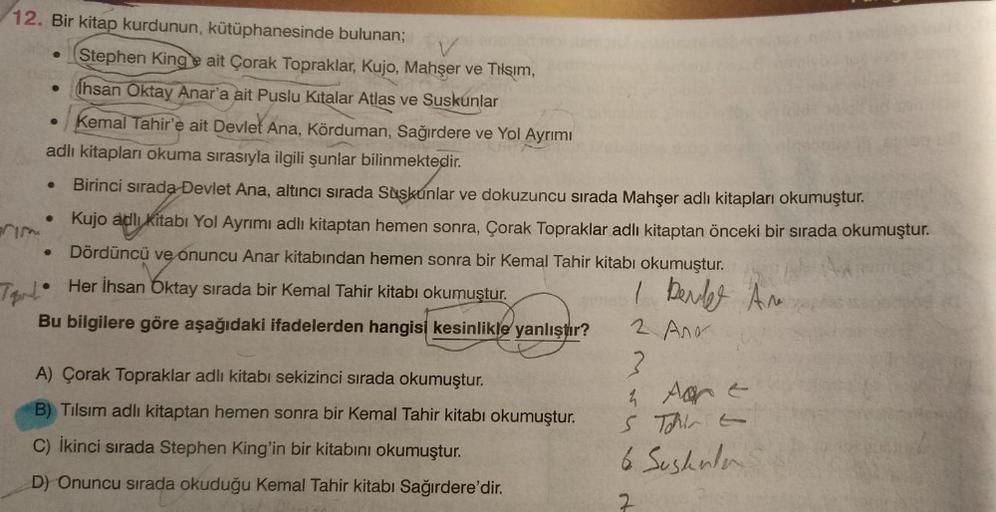 12. Bir kitap kurdunun, kütüphanesinde bulunan;
• Stephen King'e ait Çorak Topraklar, Kujo, Mahşer ve Tılsım,
• İhsan Oktay Anar'a ait Puslu Kıtalar Atlas ve Suskunlar
• Kemal Tahir'e ait Devlet Ana, Körduman, Sağırdere ve Yol Ayrımı
adlı kitapları okuma sırasıyla ilgili şunlar bilinmektedir.
• Birinci sırada Devlet Ana, altıncı sırada Suskunlar ve dokuzuncu sırada Mahşer adlı kitapları okumuştur.
• Kujo adlı kitabı Yol Ayrımı adlı kitaptan hemen sonra, Çorak Topraklar adlı kitaptan önceki bir sırada okumuştur.
• Dördüncü ve onuncu Anar kitabından hemen sonra bir Kemal Tahir kitabı okumuştur.
• Her İhsan Oktay sırada bir Kemal Tahir kitabı okumuştur.
Bu bilgilere göre aşağıdaki ifadelerden hangisi kesinlikle yanlıştır?
A) Çorak Topraklar adlı kitabı sekizinci sırada okumuştur.
B) Tılsım adlı kitaptan hemen sonra bir Kemal Tahir kitabı okumuştur.
C) İkinci sırada Stephen King'in bir kitabını okumuştur.
D) Onuncu sırada okuduğu Kemal Tahir kitabı Sağırdere'dir.
1 Devlet An
2 Ana
3
4
5 Tahir
6 Suskunlar
7